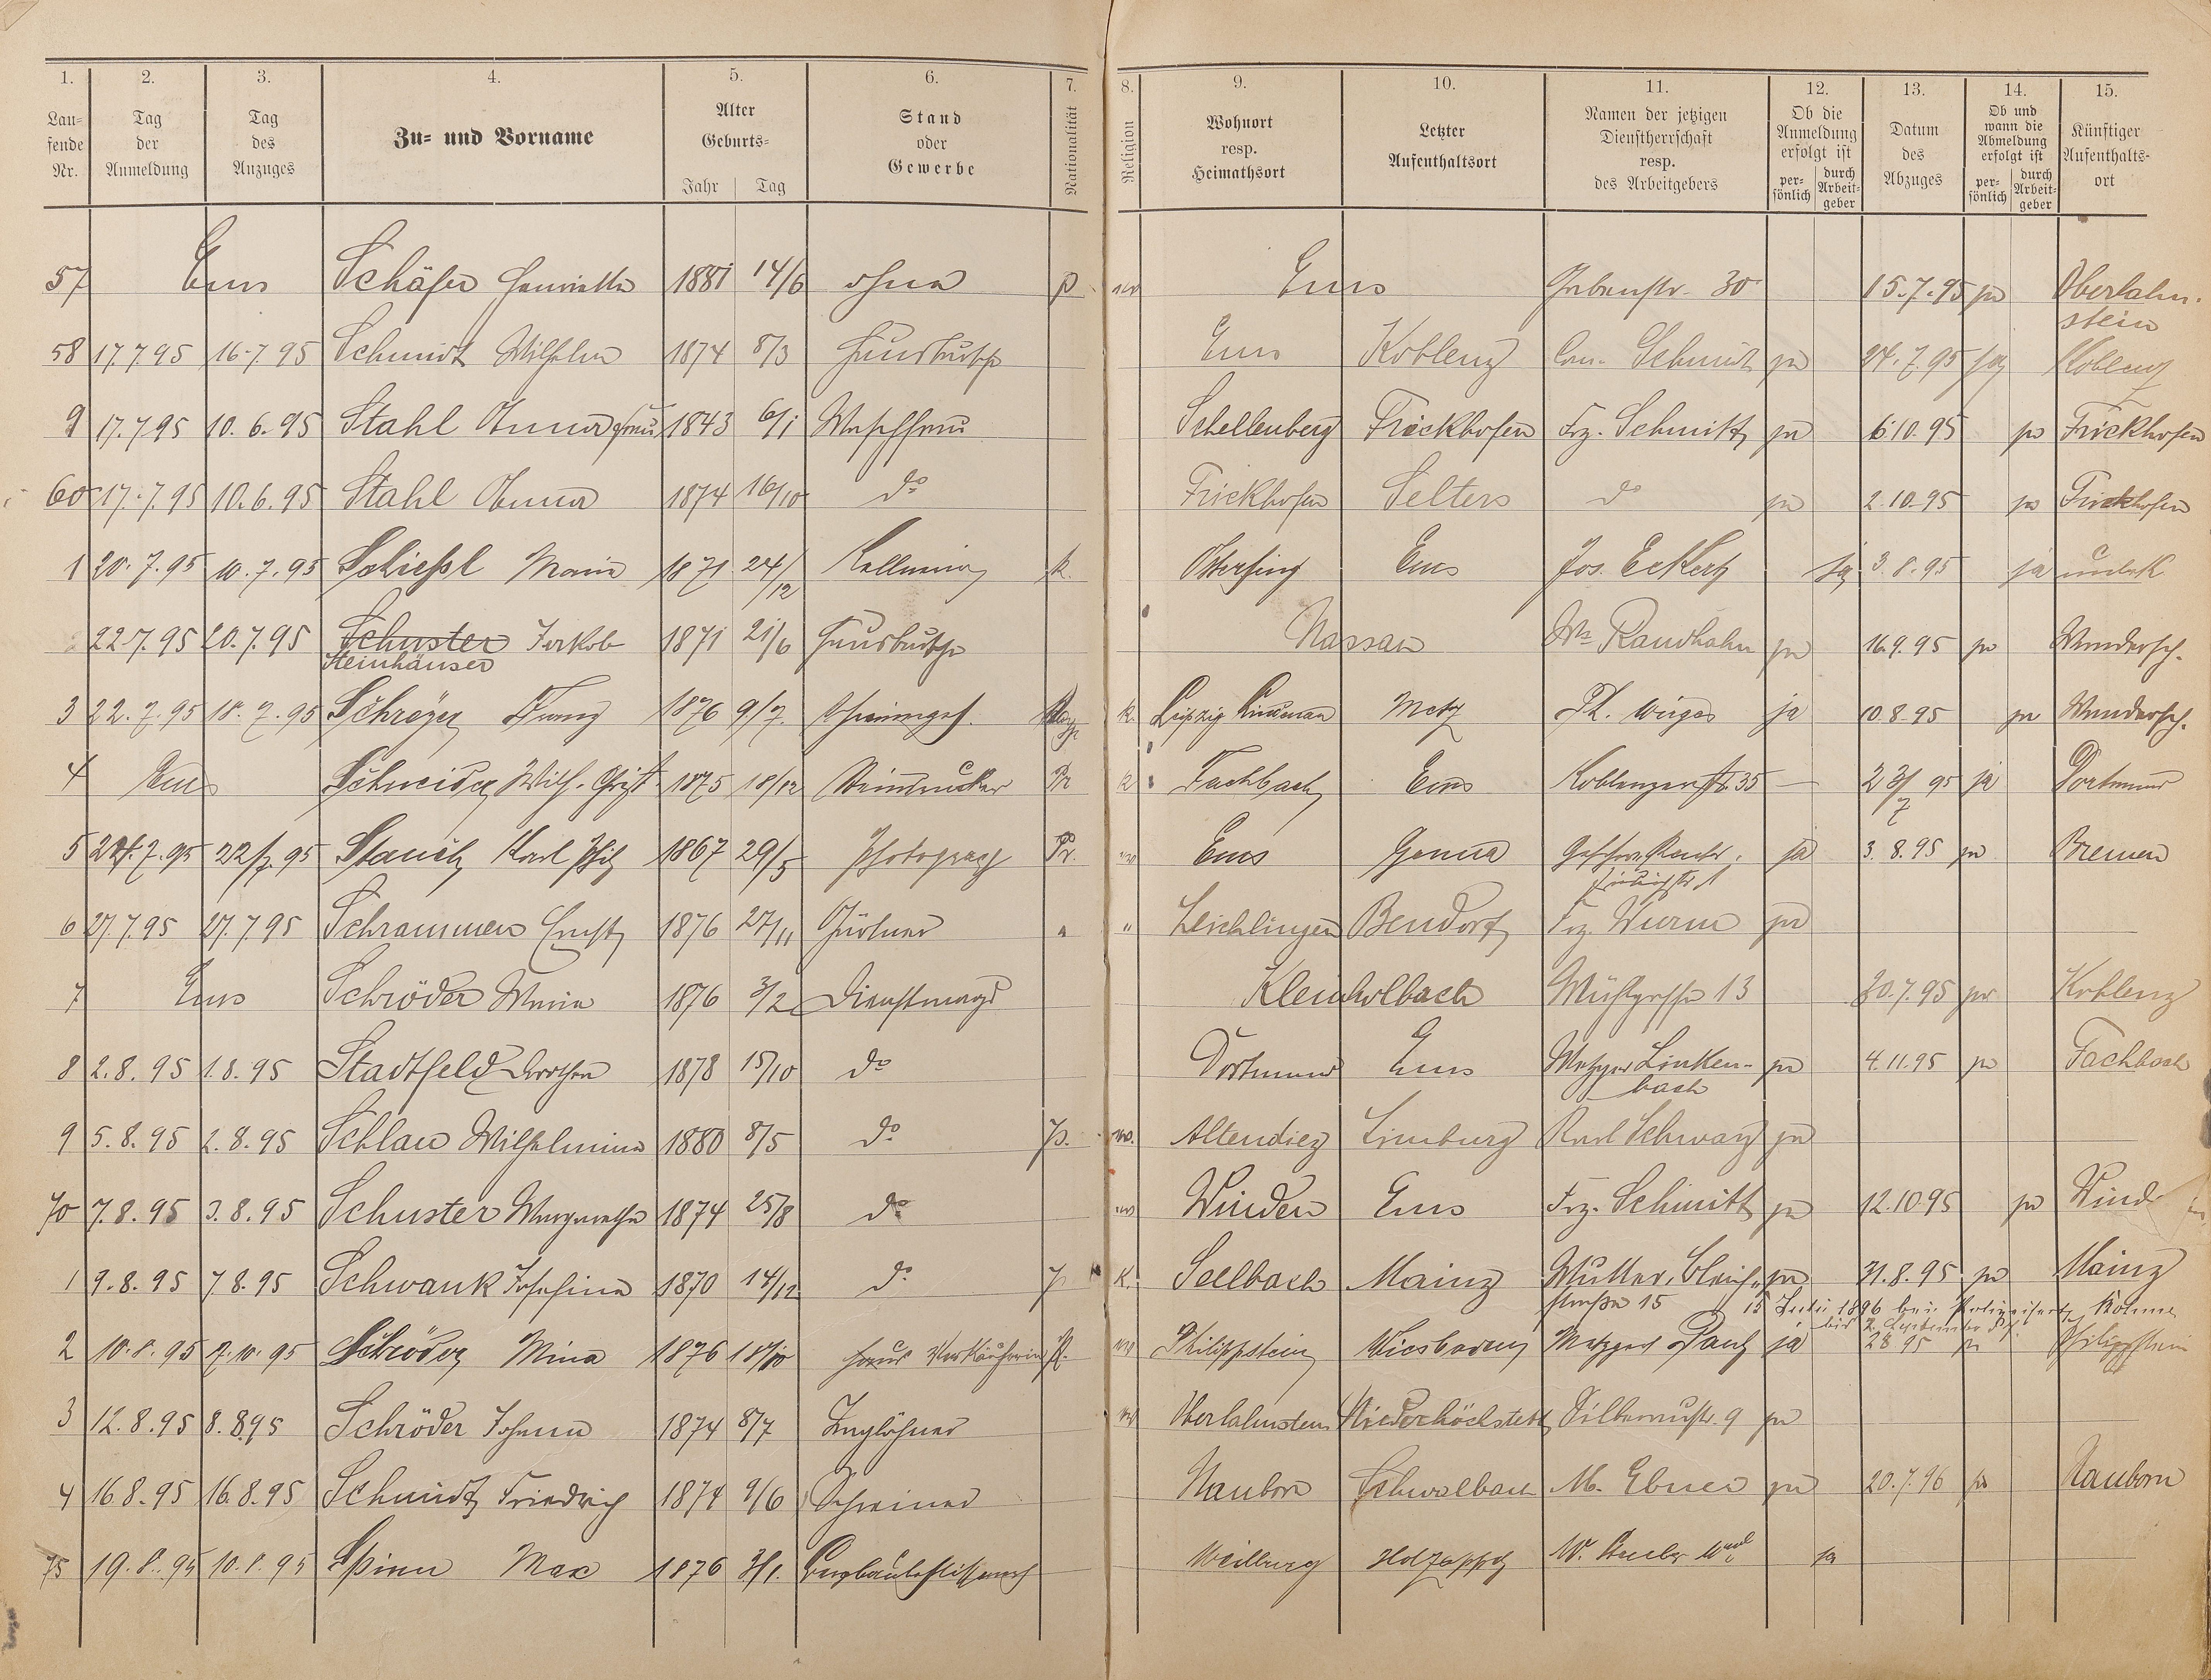 1. 2. 3. 4. 5. 6. 7. 8. 9. 10. 11. 12. 13. 14. 15.
Lau=fende Nr. Tag der Anmeldung Tag des Anzuges Zu= und Vorname Alter Geburts= Jahr Tag Stand oder Gewerbe Nationalität Religion Wohnort resp. Heimathsort Letzter Aufenthaltsort Namen der jetzigen Dienstherrschaft resp. des Arbeitgebers Ob die Anmeldung erfolgt ist per=sönlich durch Arbeit=geber Datum des Abzuges Ob und wann die Abmeldung erfolgt ist per=sönlich durch Arbeit=geber Künftiger Aufenthalts=ort
57 Ems Schäfer Henriette 1881 14/6 ohne p Ems Grabenstr. 30 15.7.95 ja Oberlahn-
stein
58 17.7.95 16.7.95 Schmidt Wilhelm 1874 8/3 Hausbursche Ems Koblenz Schmidt ja 24.7.95 ja Koblenz
9 17.7.95 10.6.95 Stahl Anna Frau 1843 6/1 Waschfrau Schellenberg Frickhofen Frz. Schmitt ja 6.10.95 ja Frickhofen
60 17.7.95 10.6.95 Stahl Anna 1874 16/10 do Frickhofen Selters do ja 2.10.95 ja Frickhofen
1 20.7.95 10.7.95 Schießl Maria 1871 24/12 Kellnerin k. Ems Jos. Eckert ja 3.8.95 ja unbek
22.7.95 20.7.95 Schuster Jakob 1871 21/6 Hausbursche Nassau Ww Raudhahn ja 16.9.95 ja Wandersch.
Steinhäuser
3 22.7.95 18.7.95 Schröyer Franz 1876 9/7 Schreinergeh. k. Leipzig Lindenau Metz Ph. Wirges ja 10.8.95 ja Wandersch.
4 Ems Schneider Wilh. Christ 1875 18/12 Steindrucker Pr k Fachbach Ems Koblenzerstr. 35 — 23/7 95 ja Dortmund
5 24.7.95 22/7.95 Stauch Karl 1867 29/5 Photograph Pr. Ems Genua ja 3.8.95 ja Bremen
6 27.7.95 27.7.95 Schrammen Ernst 1876 27/11 Gärtner " " Leichlingen Bendorf Frz. Wurm ja
7 Ems Schröder Maria 1876 3/2 Dienstmagd Kleinholbach Mühlgasse 13 30.7.95 ja Koblenz
8 2.8.95 1.8.95 Stadtfeld Dorothea 1878 15/10 do Dortmund Ems Metzger Linken-
bach ja 4.11.95 ja Fachbach
9 5.8.95 2.8.95 Schlau Wilhelmine 1880 8/5 do p. Altendiez Limburg Karl Schwarz ja
70 7.8.95 3.8.95 Schuster Margarethe 1874 25/8 do Winden Ems Frz. Schmitt ja 12.10.95 ja Wind
1 9.8.95 7.8.95 Schwank Josefine 1870 14/12 do p K. Seelbach Mainz Mutter, Bleich-
straße 15 ja 31.8.95 ja Mainz
15 Juli 1896 bei
2 10.8.95 Schröder Mina 1876 18/10 Verkäuferin Philippstein Wiesbaden Metzger Paul ja 28 95 ja Philippstein
3 12.8.95 8.8.95 Schröder Johann 1874 8/7 Taglöhner Oberlahnstein Niederhöchstedt Silberaustr. 9 ja
4 16.8.95 16.8.95 Schmidt Friedrich 1874 9/6 Schreiner Nauborn Schwalbach M. Ebner ja 20.7.96 ja Nauborn
75 19.8.95 10.8.95 Spinn Max 1876 3/1. Bergbaubeflissener Weilburg Holzappel ja